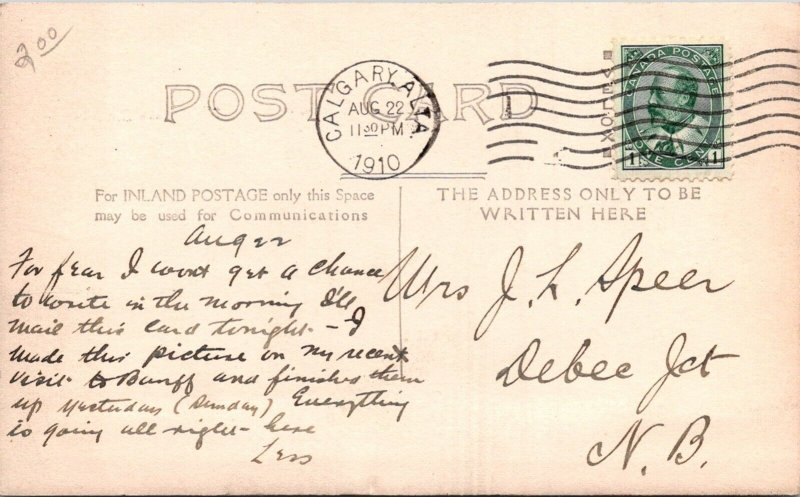 2.00
POST CARD
CALGARY, ALTA.
AUG 22
11 30 PM
1910
VELOX
CANADA POSTAGE
1 ONE CENT 1
For INLAND POSTAGE only this Space
may be used for Communications
THE ADDRESS ONLY TO BE
WRITTEN HERE
Aug 22
For fear I wont get a chance
to write in the morning I'll
mail this card tonight - I
made this picture on my recent
visit to Banff and finished them
up yesterday (Sunday) Everything
is going all right here
Less
Mrs J. L. Speer
Debec Jct
N.B.